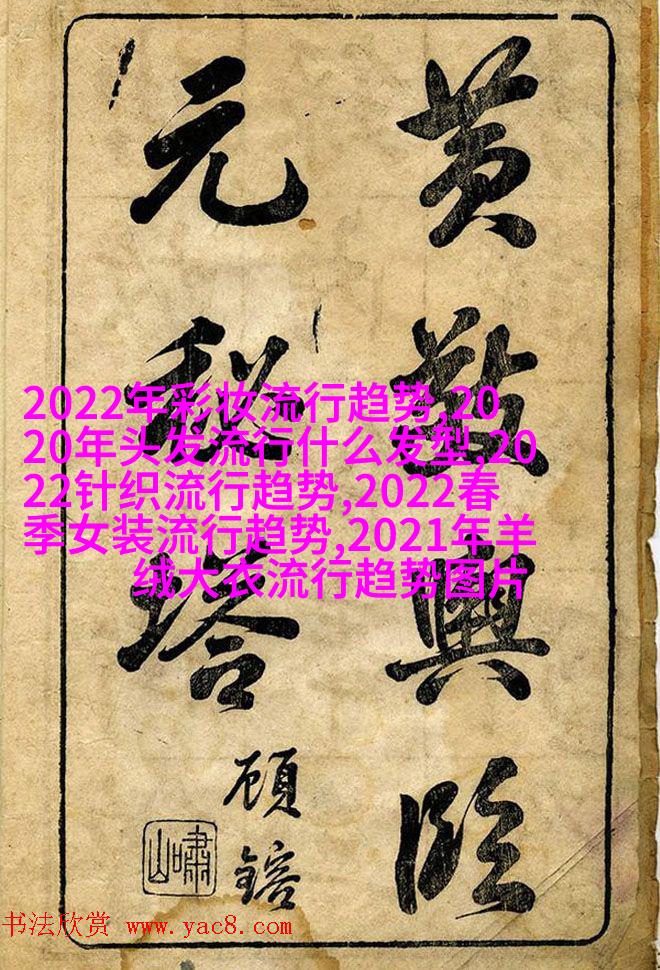 黄敬輿臨
元秘塔
顧鎔
嘯山
2022年彩妆流行趋势,20
20年头发流行什么发型,20
22针织流行趋势,2022春
季女装流行趋势,2021年羊
绒大衣流行趋势图片
书法欣赏 www.yac8.com